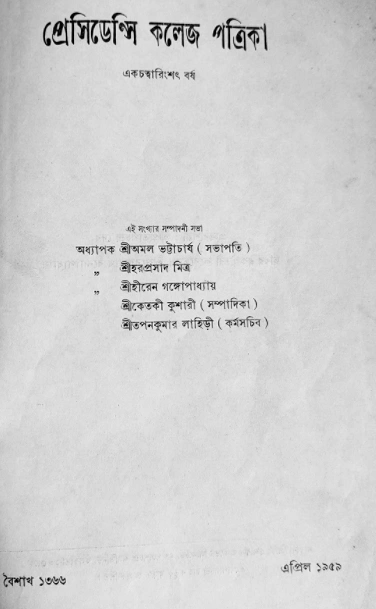 প্রেসিডেন্সি কলেজ পত্রিকা
একচত্বারিংশৎ বর্ষ
এই সংখ্যার সম্পাদনী সভা
অধ্যাপক শ্রীঅমল ভট্টাচার্য ( সভাপতি )
„ শ্রীহরপ্রসাদ মিত্র
„ শ্রীহীরেন গঙ্গোপাধ্যায়
শ্রীকেতকী কুশারী ( সম্পাদিকা )
শ্রীতপনকুমার লাহিড়ী ( কর্মসচিব )
বৈশাখ ১৩৬৬
এপ্রিল ১৯৫৯